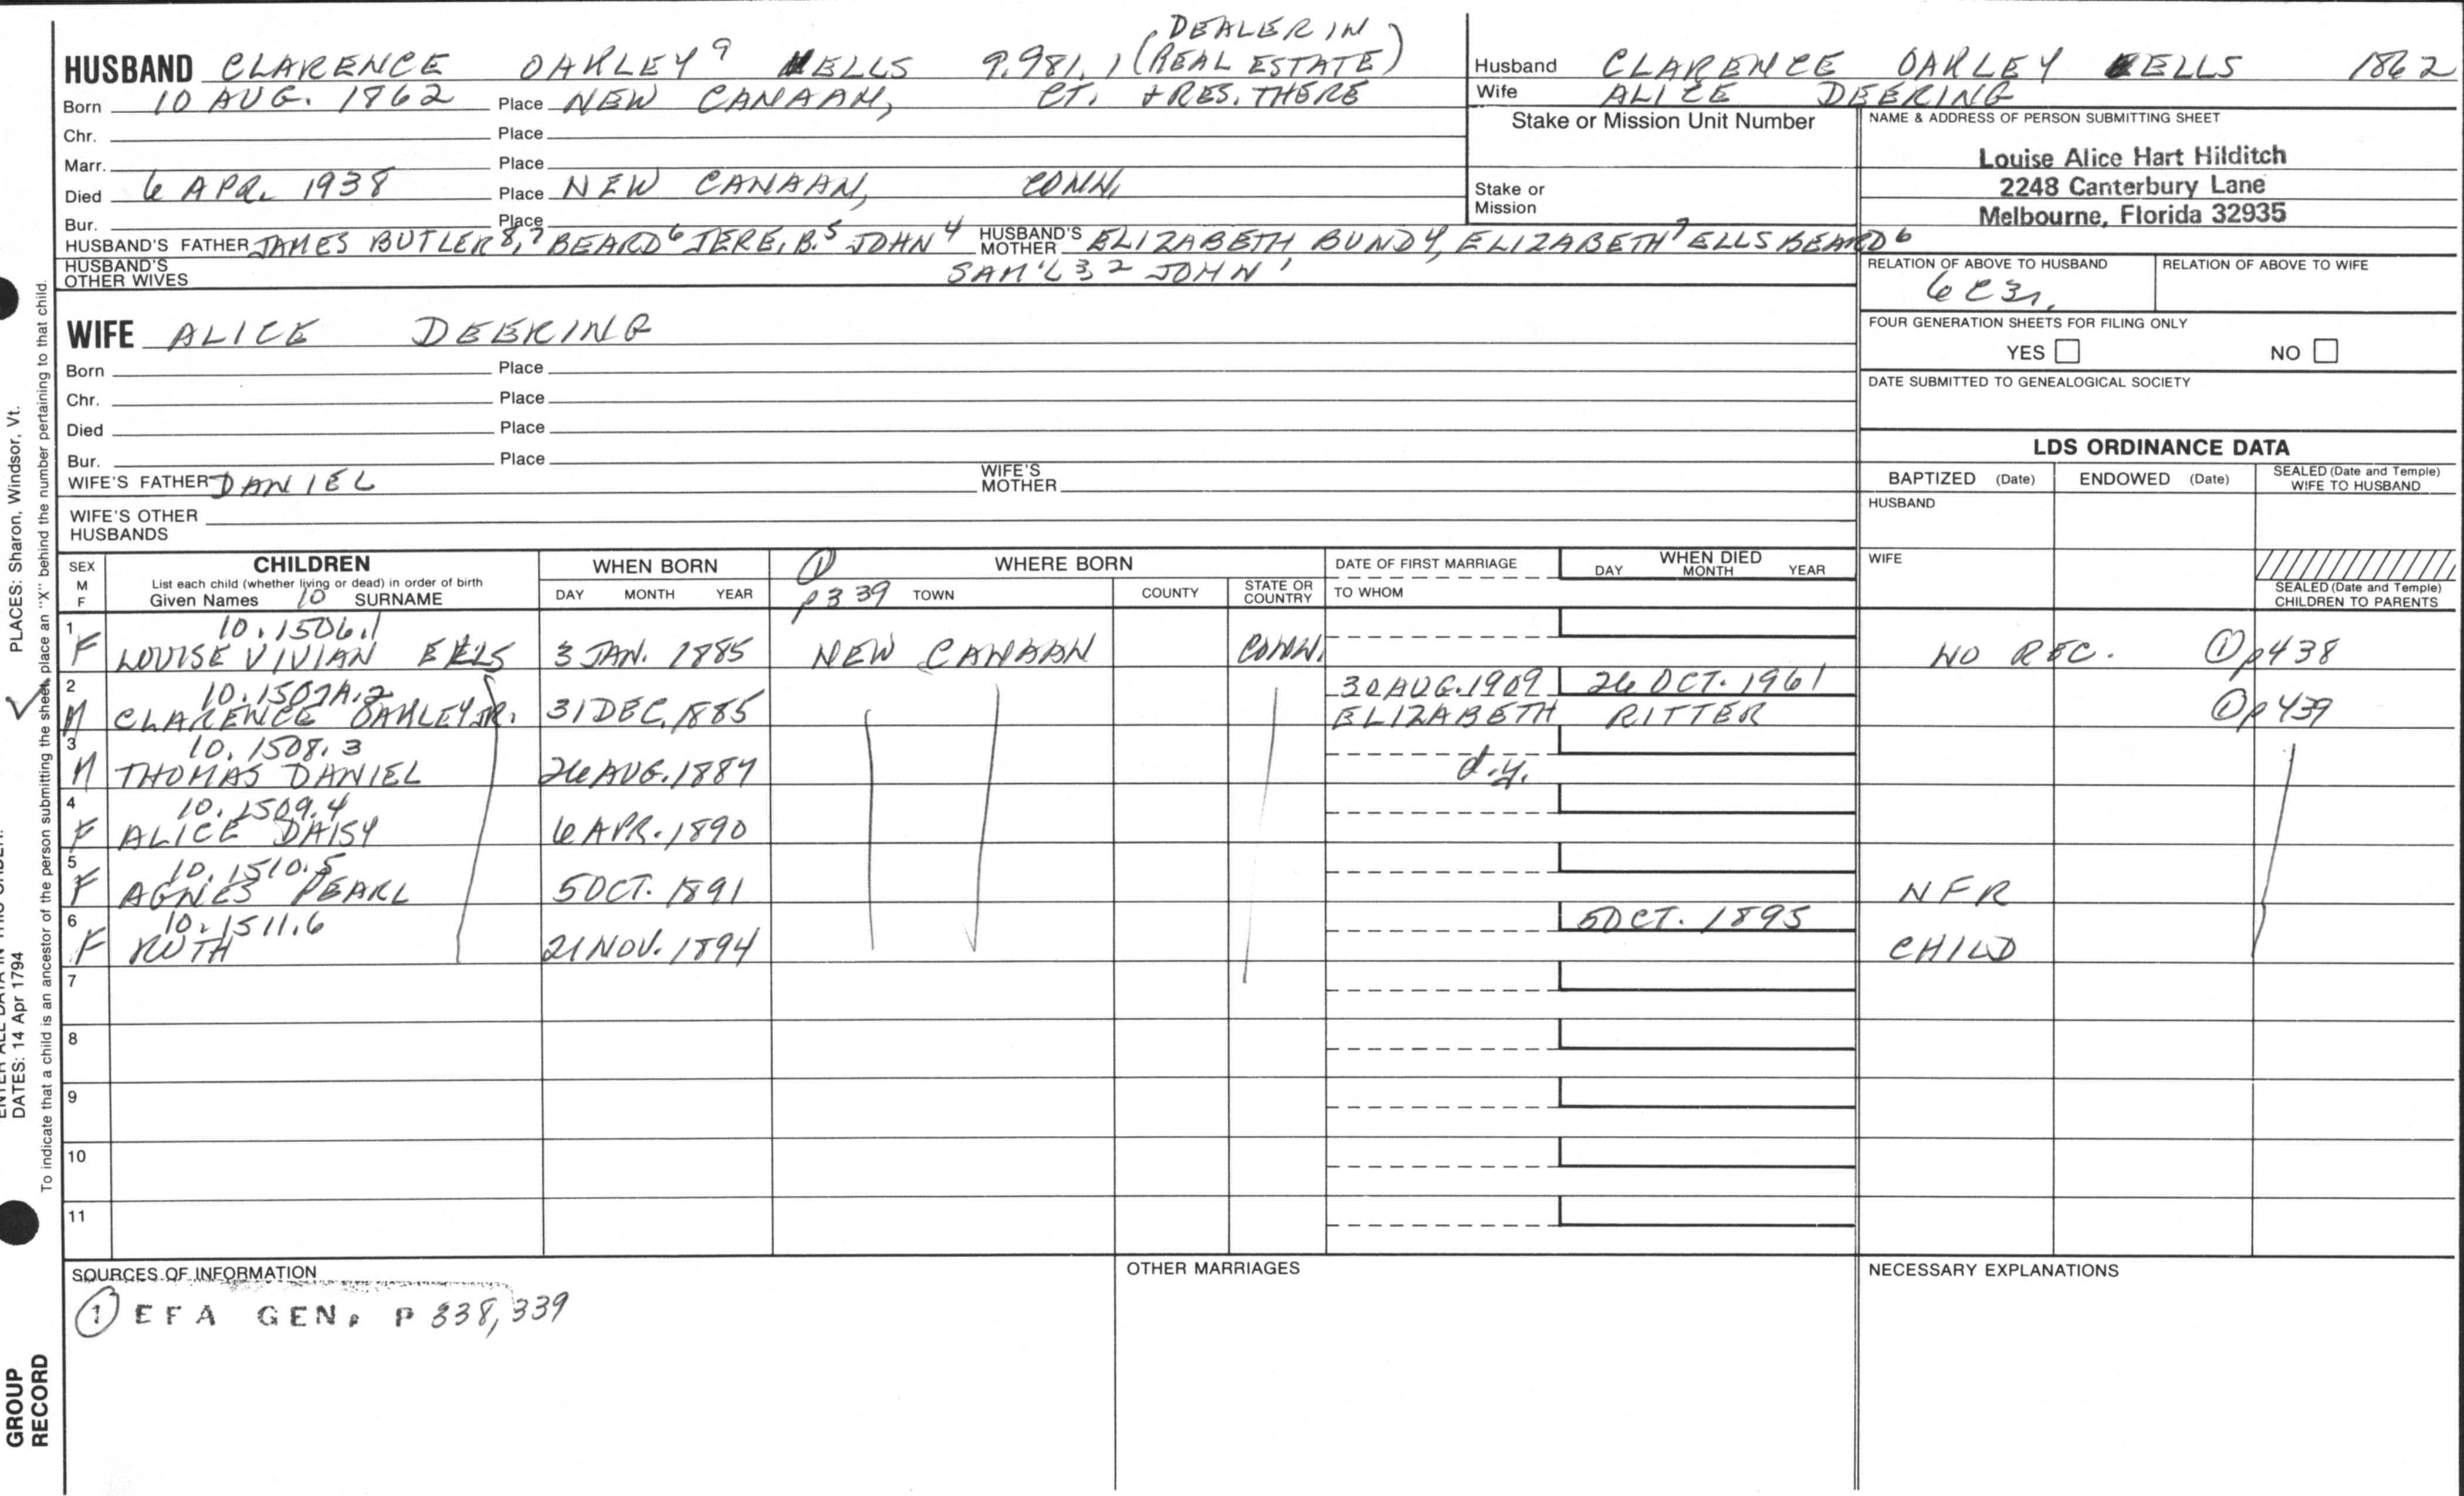 (DEALER IN
HUSBAND CLARENCE OAKLEY⁹ ELLS 9.981.1 (REAL ESTATE)
Born 10 AUG. 1862 Place NEW CANAAN, CT. + RES. THERE
Chr. Place
Marr. Place
Died 6 APR. 1938 Place NEW CANAAN, CONN.
Bur. Place
HUSBAND'S FATHER JAMES BUTLER⁸,⁷ BEARD⁶ JERE. B.⁵ JOHN⁴ HUSBAND'S MOTHER ELIZABETH BUNDY, ELIZABETH⁷ ELLS BEARD⁶
HUSBAND'S OTHER WIVES SAM'L 3, 2 JOHN¹
Husband CLARENCE OAKLEY ELLS 1862
Wife ALICE DEERING
Stake or Mission Unit Number
Stake or Mission
NAME & ADDRESS OF PERSON SUBMITTING SHEET
Louise Alice Hart Hilditch
2248 Canterbury Lane
Melbourne, Florida 32935
RELATION OF ABOVE TO HUSBAND RELATION OF ABOVE TO WIFE
6C3r.
FOUR GENERATION SHEETS FOR FILING ONLY
YES NO
DATE SUBMITTED TO GENEALOGICAL SOCIETY
WIFE ALICE DEERING
Born Place
Chr. Place
Died Place
Bur. Place
WIFE'S FATHER DANIEL WIFE'S MOTHER
WIFE'S OTHER HUSBANDS
LDS ORDINANCE DATA
BAPTIZED (Date) ENDOWED (Date) SEALED (Date and Temple) WIFE TO HUSBAND
HUSBAND
WIFE
SEALED (Date and Temple) CHILDREN TO PARENTS
SEX M F
CHILDREN
List each child (whether living or dead) in order of birth
Given Names 10 SURNAME
WHEN BORN
DAY MONTH YEAR
① p339
WHERE BORN
TOWN COUNTY STATE OR COUNTRY
DATE OF FIRST MARRIAGE
TO WHOM
WHEN DIED
DAY MONTH YEAR
1 10.1506.1
F LOUISE VIVIAN EELLS 3 JAN. 1885 NEW CANAAN CONN. NO REC. ① p438
2 10.1507A.2 30 AUG. 1909 26 OCT. 1961
M CLARENCE OAKLEY JR. 31 DEC. 1885 ELIZABETH RITTER ① p439
3 10.1508.3
M THOMAS DANIEL 26 AUG. 1887 d.y.
4 10.1509.4
F ALICE DAISY 6 APR. 1890
5 10.1510.5
F AGNES PEARL 5 OCT. 1891 NFR
6 10.1511.6 5 OCT. 1895
F RUTH 21 NOV. 1894 CHILD
7
8
9
10
11
SOURCES OF INFORMATION
① EFA GEN. P 338, 339
OTHER MARRIAGES
NECESSARY EXPLANATIONS
PLACES: Sharon, Windsor, Vt.
DATES: 14 Apr 1794
To indicate that a child is an ancestor of the person submitting the sheet, place an "X" behind the number pertaining to that child.
GROUP
RECORD